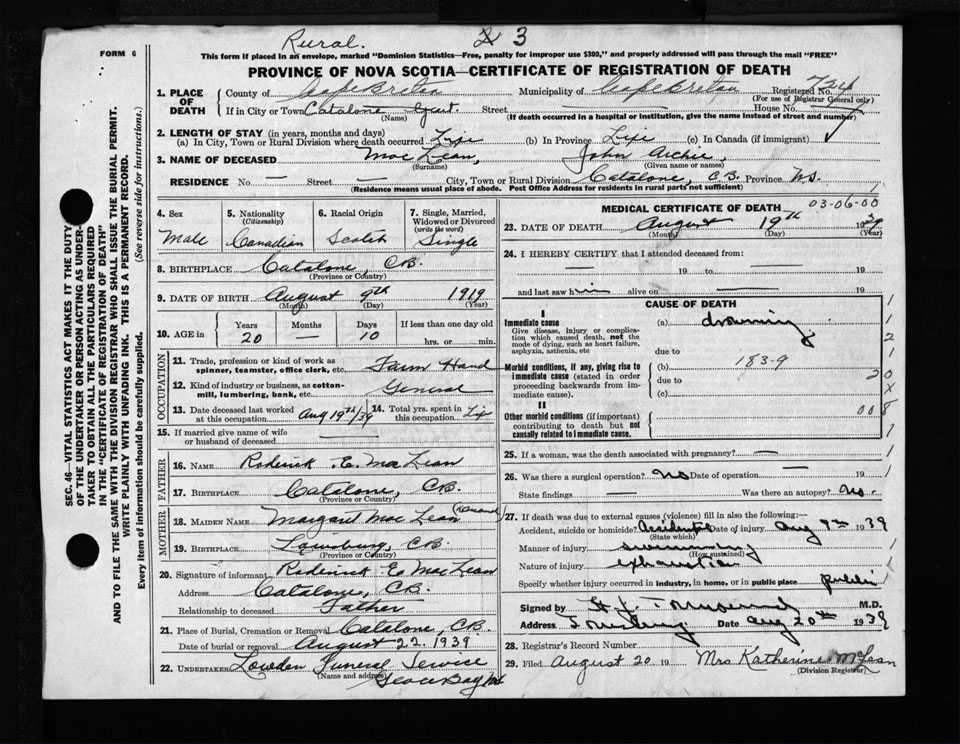 Rural. 2 3
FORM 6
This form if placed in an envelope, marked "Dominion Statistics—Free, penalty for improper use $300," and properly addressed will pass through the mail "FREE"
PROVINCE OF NOVA SCOTIA—CERTIFICATE OF REGISTRATION OF DEATH
1. PLACE OF DEATH
County of Cape Breton Municipality of Cape Breton Registered No. 724
(For use of Registrar General only)
If in City or Town Catalone Gut Street — House No.
(Name) (If death occurred in a hospital or institution, give the name instead of street and number)
2. LENGTH OF STAY (in years, months and days)
(a) In City, Town or Rural Division where death occurred Life (b) In Province Life (c) In Canada (if immigrant)
3. NAME OF DECEASED Mac Lean, John Archie,
(Surname) (Given name or names)
RESIDENCE No. — Street — City, Town or Rural Division Catalone, CB Province NS.
(Residence means usual place of abode. Post Office Address for residents in rural parts not sufficient)
4. Sex Male
5. Nationality (Citizenship) Canadian
6. Racial Origin Scotch
7. Single, Married, Widowed or Divorced (write the word) Single
8. BIRTHPLACE Catalone, CB.
(Province or Country)
9. DATE OF BIRTH August 9th 1919
(Month) (Day) (Year)
10. AGE in Years Months Days If less than one day old
20 — 10 hrs. or min.
OCCUPATION
11. Trade, profession or kind of work as spinner, teamster, office clerk, etc. Farm Hand
12. Kind of industry or business, as cotton-mill, lumbering, bank, etc. General
13. Date deceased last worked at this occupation Aug 19th/39 14. Total yrs. spent in this occupation Life
15. If married give name of wife or husband of deceased —
FATHER
16. NAME Roderick E. Mac Lean
17. BIRTHPLACE Catalone, CB.
(Province or Country)
MOTHER
18. MAIDEN NAME Margaret Mac Lean
19. BIRTHPLACE Louisburg, CB.
(Province or Country)
20. Signature of informant Roderick E. Mac Lean
Address Catalone, CB.
Relationship to deceased Father
21. Place of Burial, Cremation or Removal Catalone, CB.
Date of burial or removal August 22. 1939
22. UNDERTAKER Lowden Funeral Service
(Name and address) Glace Bay NS
MEDICAL CERTIFICATE OF DEATH 03-06-00
23. DATE OF DEATH August 19th 1939
(Month) (Day) (Year)
24. I HEREBY CERTIFY that I attended deceased from:
— 19 to — 19
and last saw him alive on — 19
CAUSE OF DEATH
I
Immediate cause (a) drowning
Give disease, injury or complication which caused death, not the mode of dying, such as heart failure, asphyxia, asthenia, etc
due to
Morbid conditions, if any, giving rise to immediate cause (stated in order proceeding backwards from immediate cause). (b) 183-9
due to
(c)
II
Other morbid conditions (if important) contributing to death but not causally related to immediate cause.
1
1
2
1
20
X
008
1
25. If a woman, was the death associated with pregnancy? —
26. Was there a surgical operation? No Date of operation — 19
State findings — Was there an autopsy? No.
27. If death was due to external causes (violence) fill in also the following:—
Accident, suicide or homicide? Accident Date of injury Aug 9th 1939
(State which)
Manner of injury swimming
(How sustained)
Nature of injury exhaustion
Specify whether injury occurred in industry, in home, or in public place public
Signed by M.D.
Address Louisburg Date Aug 20th 1939
28. Registrar's Record Number
29. Filed August 20 19 Mrs Katherine McLean
(Division Registrar)
SEC. 46—VITAL STATISTICS ACT MAKES IT THE DUTY OF THE UNDERTAKER OR PERSON ACTING AS UNDERTAKER TO OBTAIN ALL THE PARTICULARS REQUIRED IN THE "CERTIFICATE OF REGISTRATION OF DEATH" AND TO FILE THE SAME WITH THE DIVISION REGISTRAR WHO SHALL ISSUE THE BURIAL PERMIT.
WRITE PLAINLY WITH UNFADING INK. THIS IS A PERMANENT RECORD.
Every item of information should be carefully supplied. (See reverse side for instructions.)